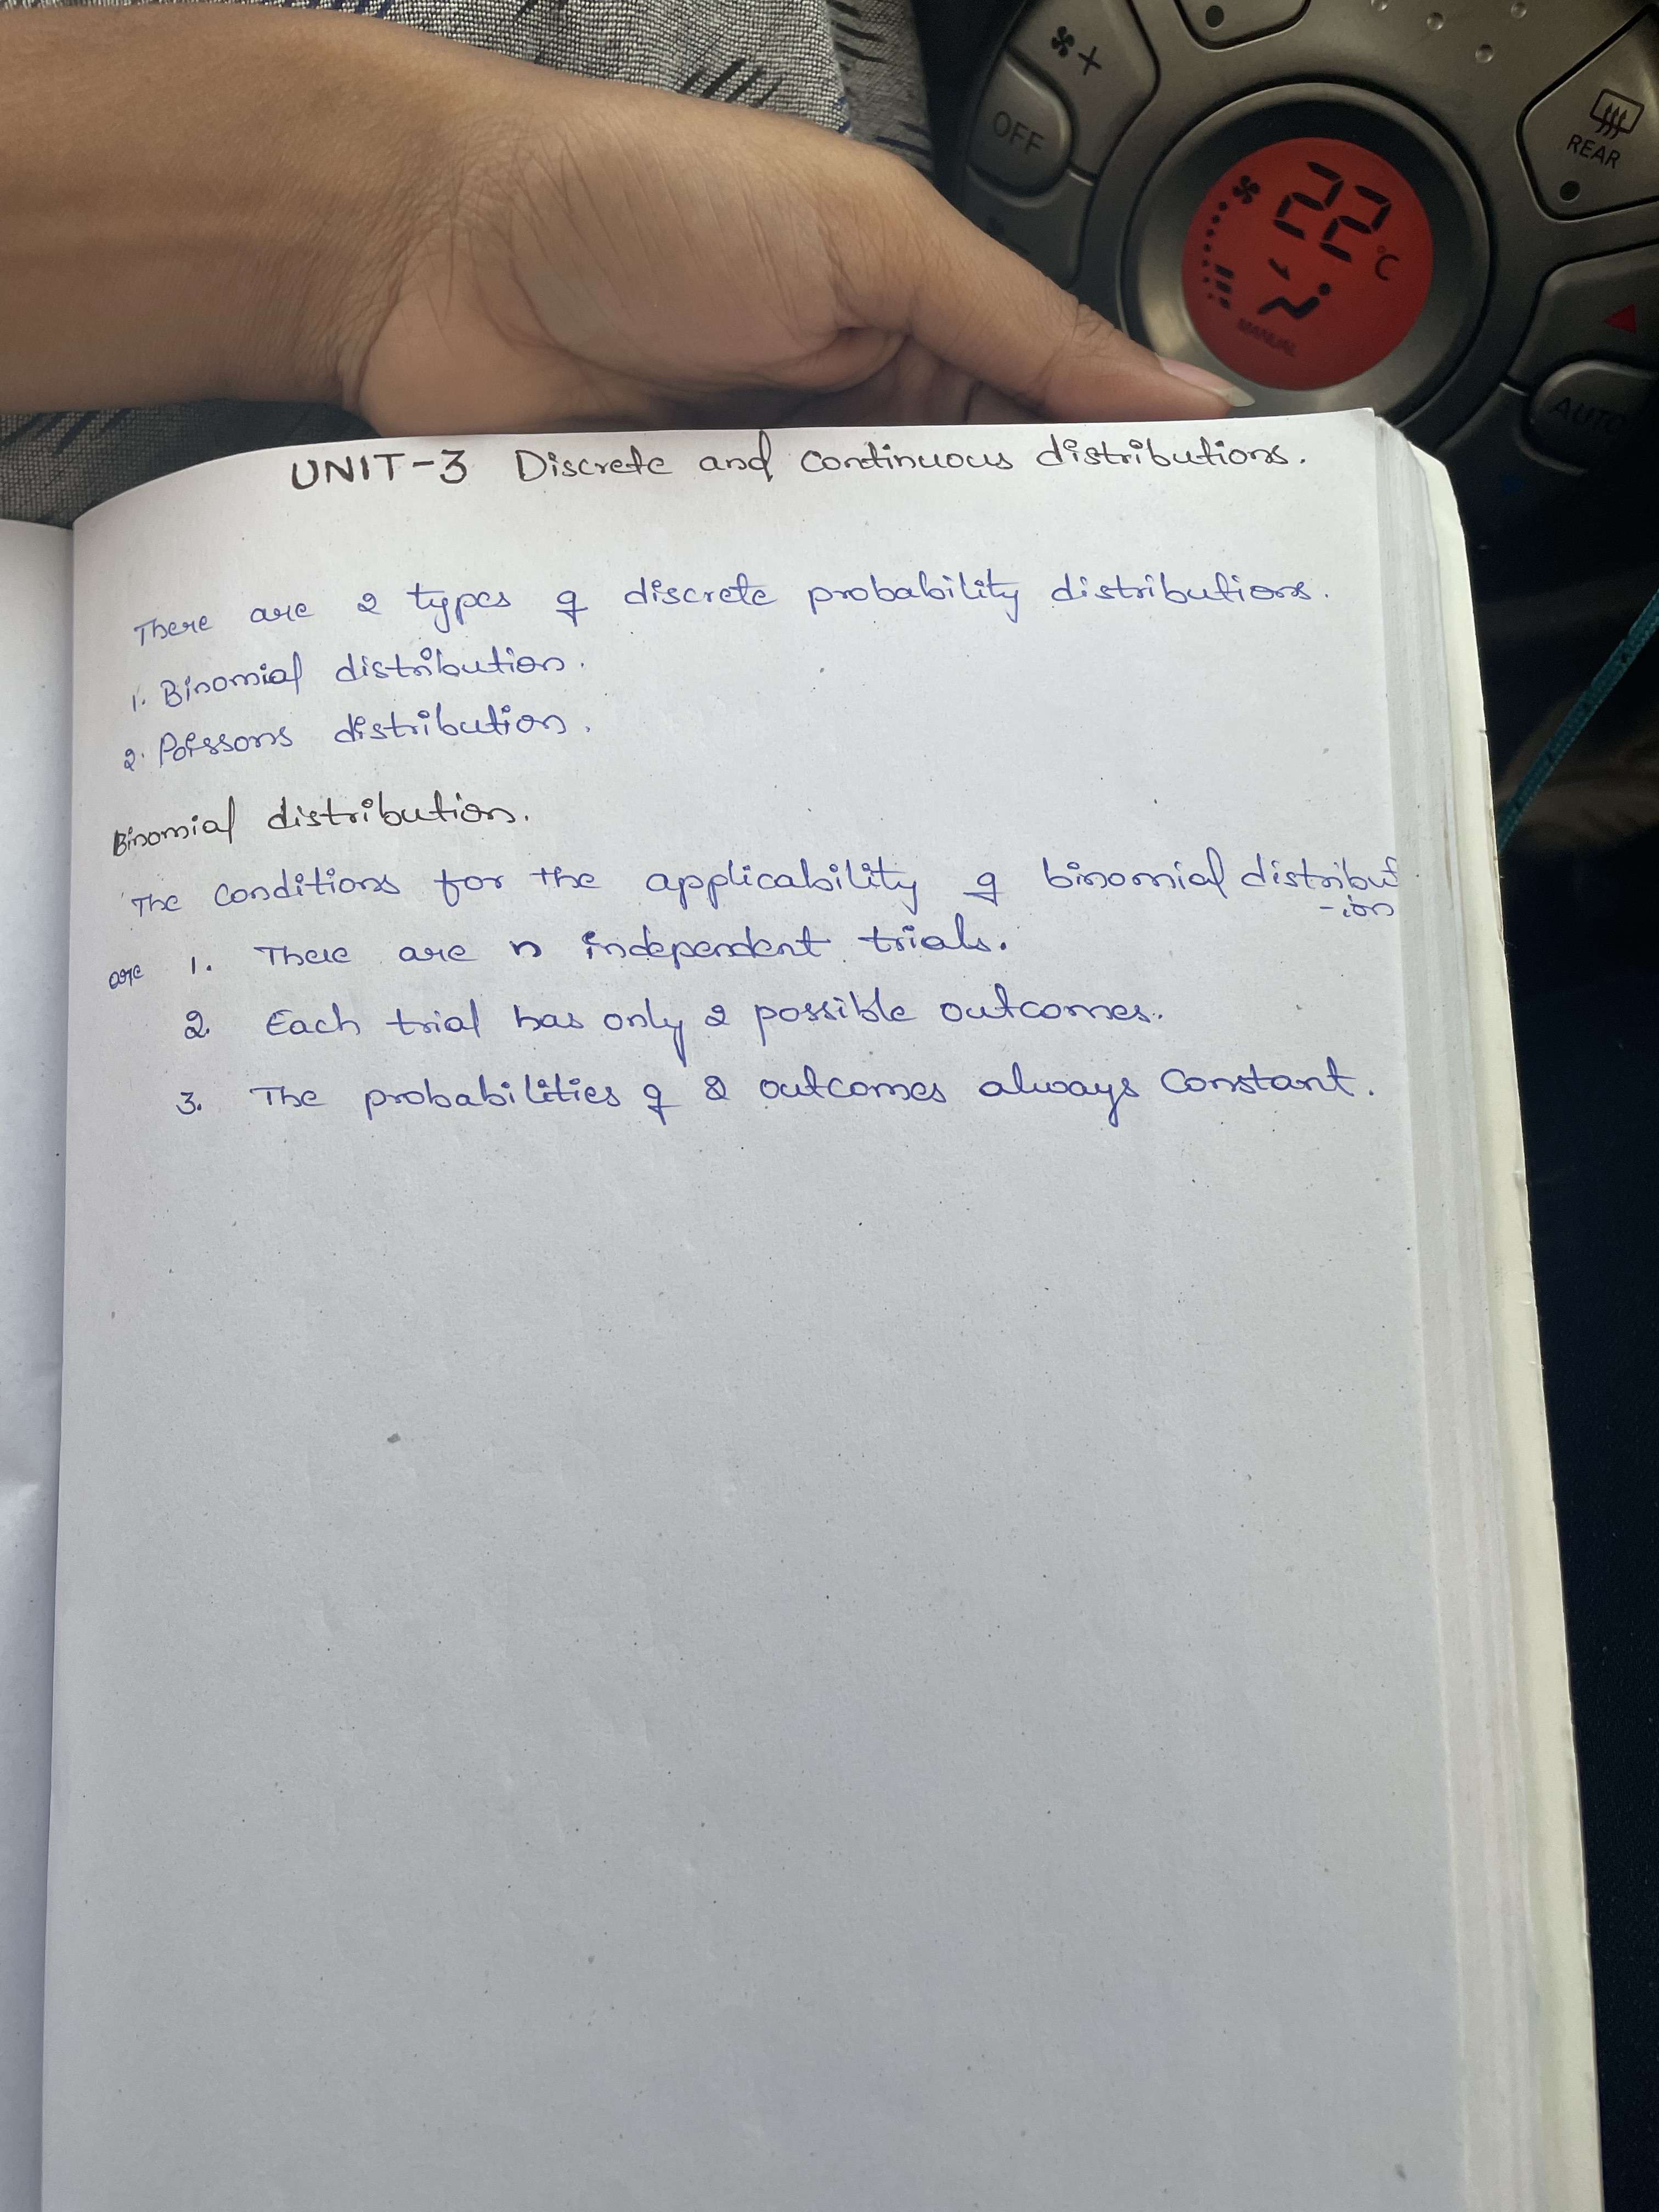 +
OFF
REAR
22 °C
MANUAL
AUTO
UNIT-3 Discrete and continuous distributions.
There are 2 types of discrete probability distributions.
1. Binomial distribution.
2. Poissons distribution.
Binomial distribution.
The conditions for the applicability of binomial distribut
-ion
are 1. There are n independent trials.
2. Each trial has only 2 possible outcomes.
3. The probabilities of 2 outcomes always constant.